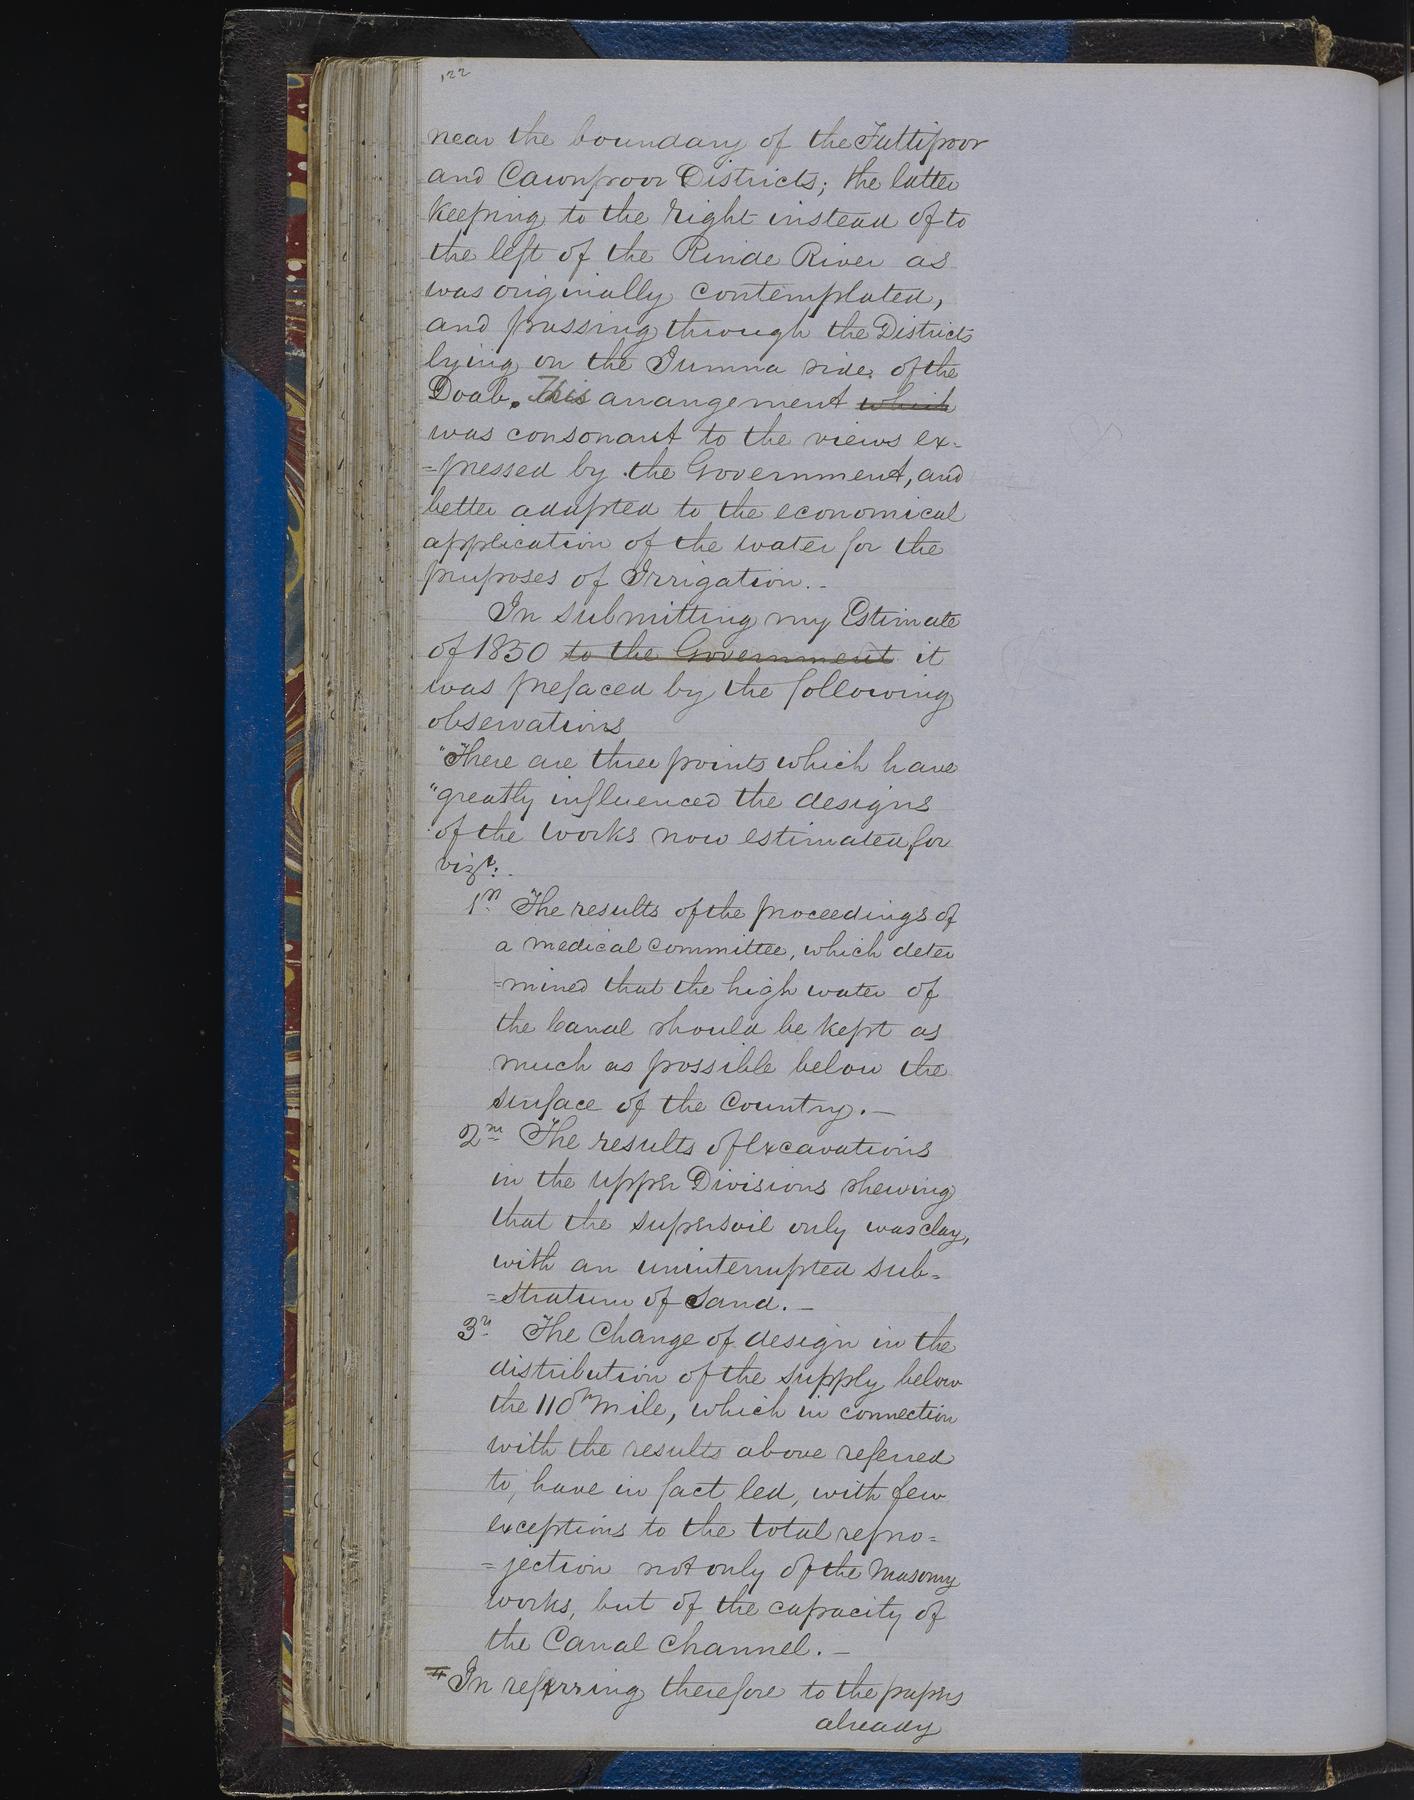 122
near the boundary of the Futtipoor
and Cawnpoor Districts; the latter
keeping to the right instead of to
the left of the Rinde River as
was originally contemplated,
and passing through the Districts
lying on the Jumna side of the
Doab. This arrangement which
was consonant to the views ex-
=pressed by the Government, and
better adapted to the economical
application of the water for the
purposes of Irrigation.-
In submitting my Estimate
of 1850 to the Government it
was prefaced by the following
observations
"There are three points which have
"greatly influenced the designs
of the works now estimated for
vizt:.
1st "The results of the proceedings of
a medical committee, which deter
=mined that the high water of
the Canal should be kept as
much as possible below the
surface of the Country.-
2nd "The results of excavations
in the upper Divisions shewing
that the supersoil only was clay,
with an uninterrupted sub-
=stratum of Sand.-
3rd The Change of design in the
distribution of the supply below
the 110th mile, which in connection
with the results above referred
to, have in fact led, with few
exceptions to the total repro-
=jection not only of the Masonry
works, but of the capacity of
the Canal Channel.-
"In referring therefore to the papers
already